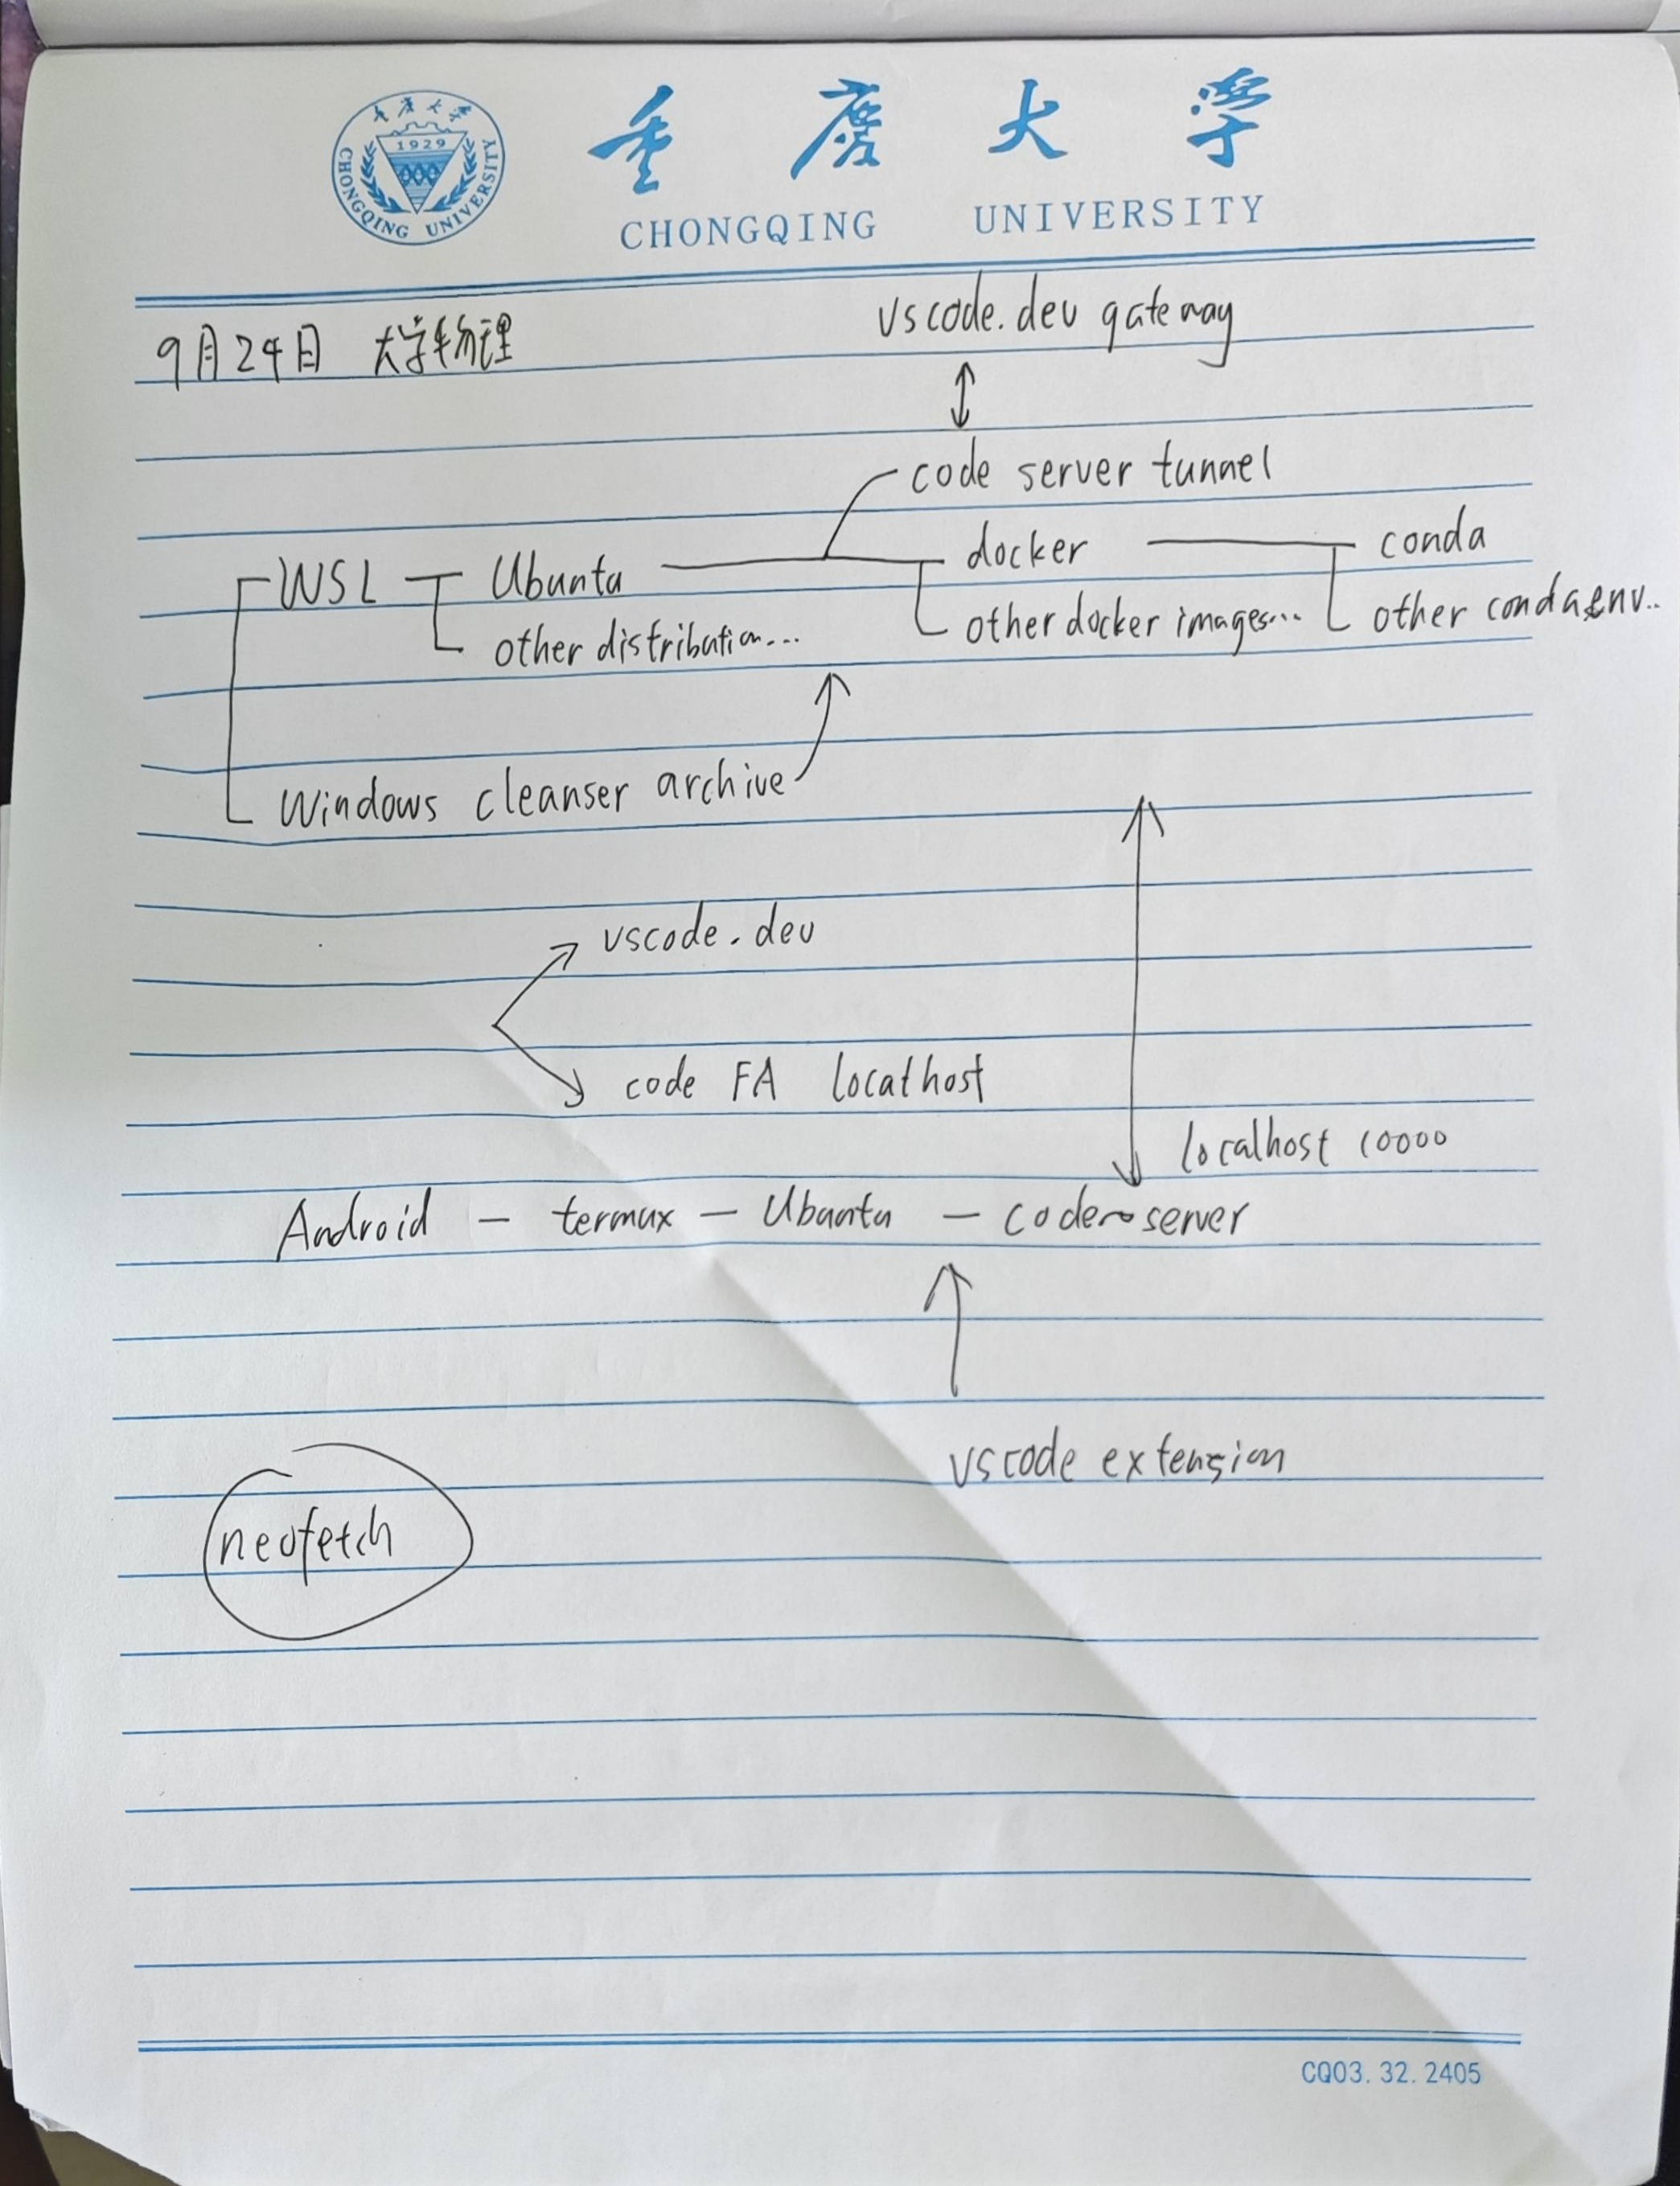 重庆大学
1929
CHONGQING UNIVERSITY
重庆大学
CHONGQING UNIVERSITY
9月24日 大学物理
vscode.dev gateway
code server tunnel
WSL Ubuntu docker conda
other distribution... other docker images... other conda env..
Windows cleanser archive
vscode.dev
code FA localhost
localhost 10000
Android - termux - Ubuntu - code-server
vscode extension
neofetch
CQ03.32.2405